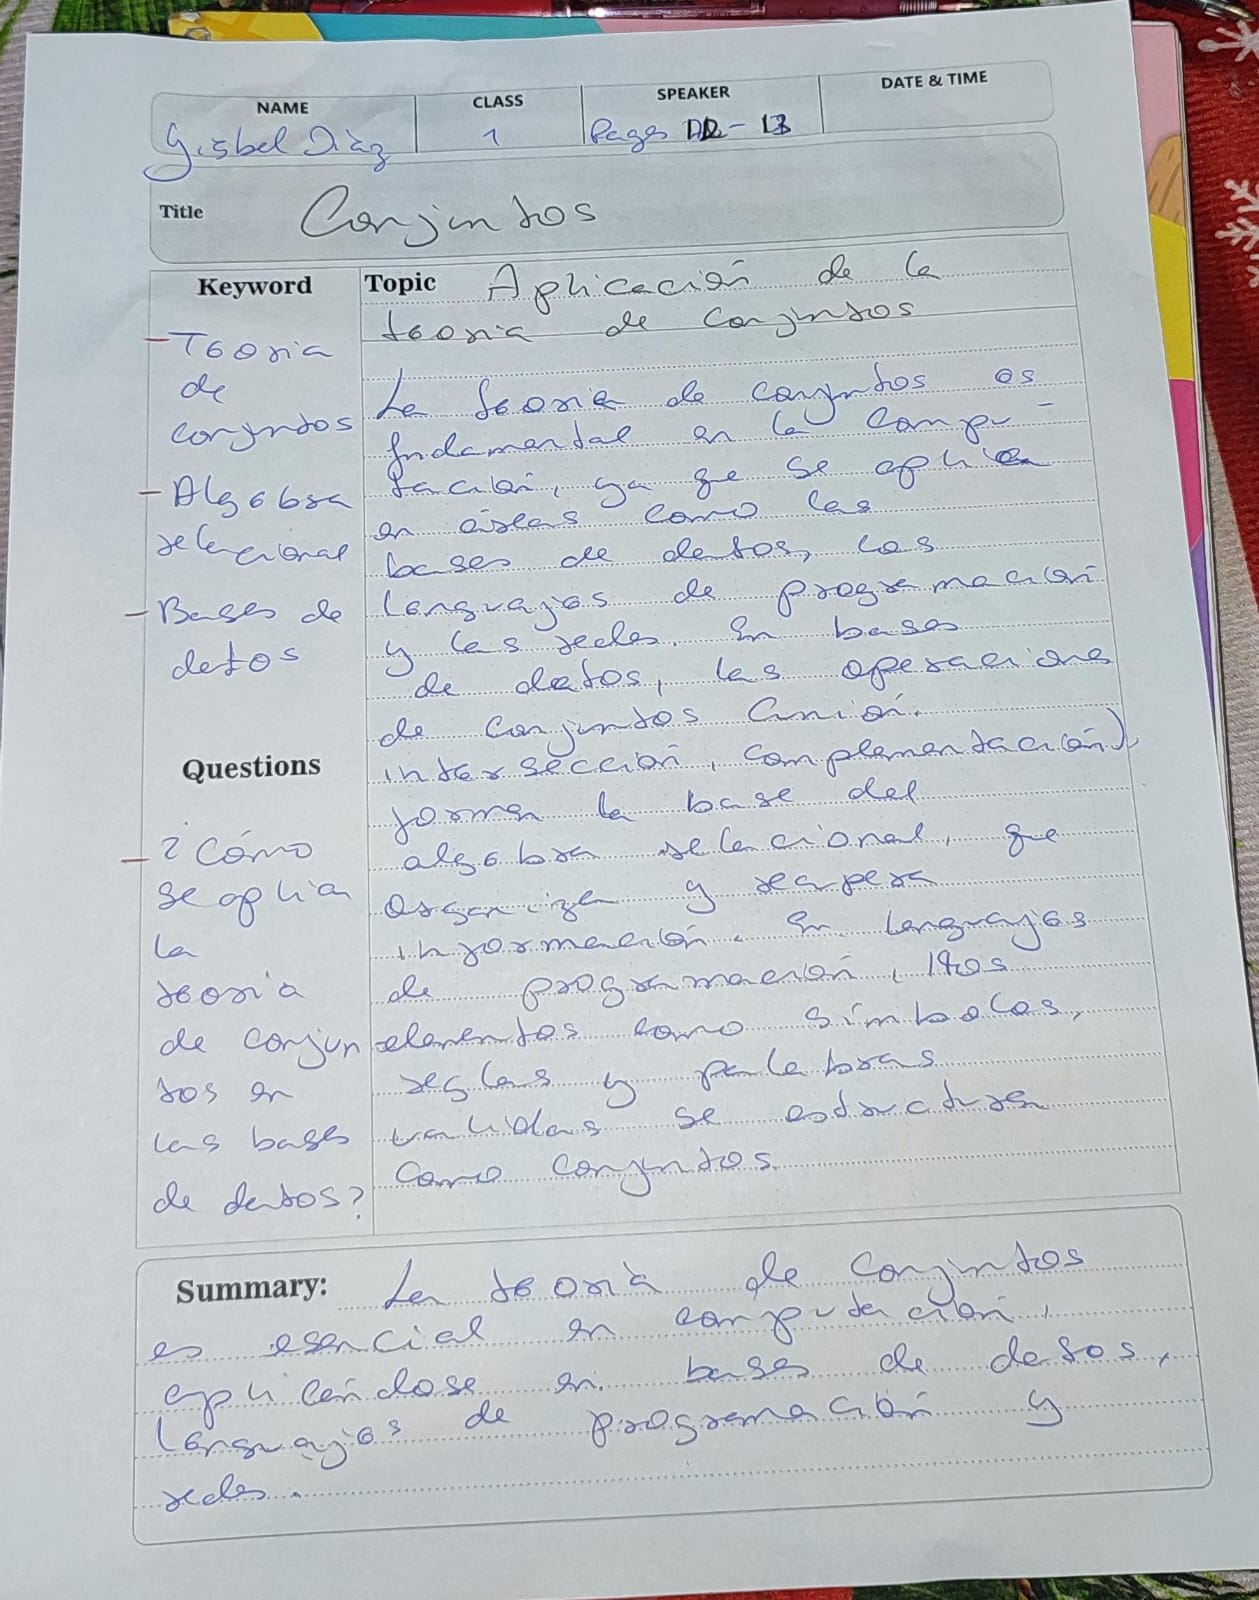 NAME CLASS SPEAKER DATE & TIME
Gisbel Diaz 1 Pages - 13
Title Conjuntos
Keyword
- Teoria
de
conjuntos
- Algebra
relacional
- Bases de
datos
Questions
- ? Cómo
se aplica
la
teoria
de conjun
tos en
las bases
de datos?
Topic Aplicación de la
teoria de conjuntos
La teoria de conjuntos es
fundamental en la compu-
tación, ya que se aplica
en áreas como las
bases de datos, los
lenguajes de programación
y las redes. En bases
de datos, las operaciones
de conjuntos (unión,
intersección, complementación),
forman la base del
algebra relacional, que
organiza y recupera
información. En lenguajes
de programación, los
elementos como símbolos,
reglas y palabras
validas se estructuran
como conjuntos.
Summary: La teoria de conjuntos
es esencial en computación,
aplicándose en bases de datos,
lenguajes de programación y
redes.